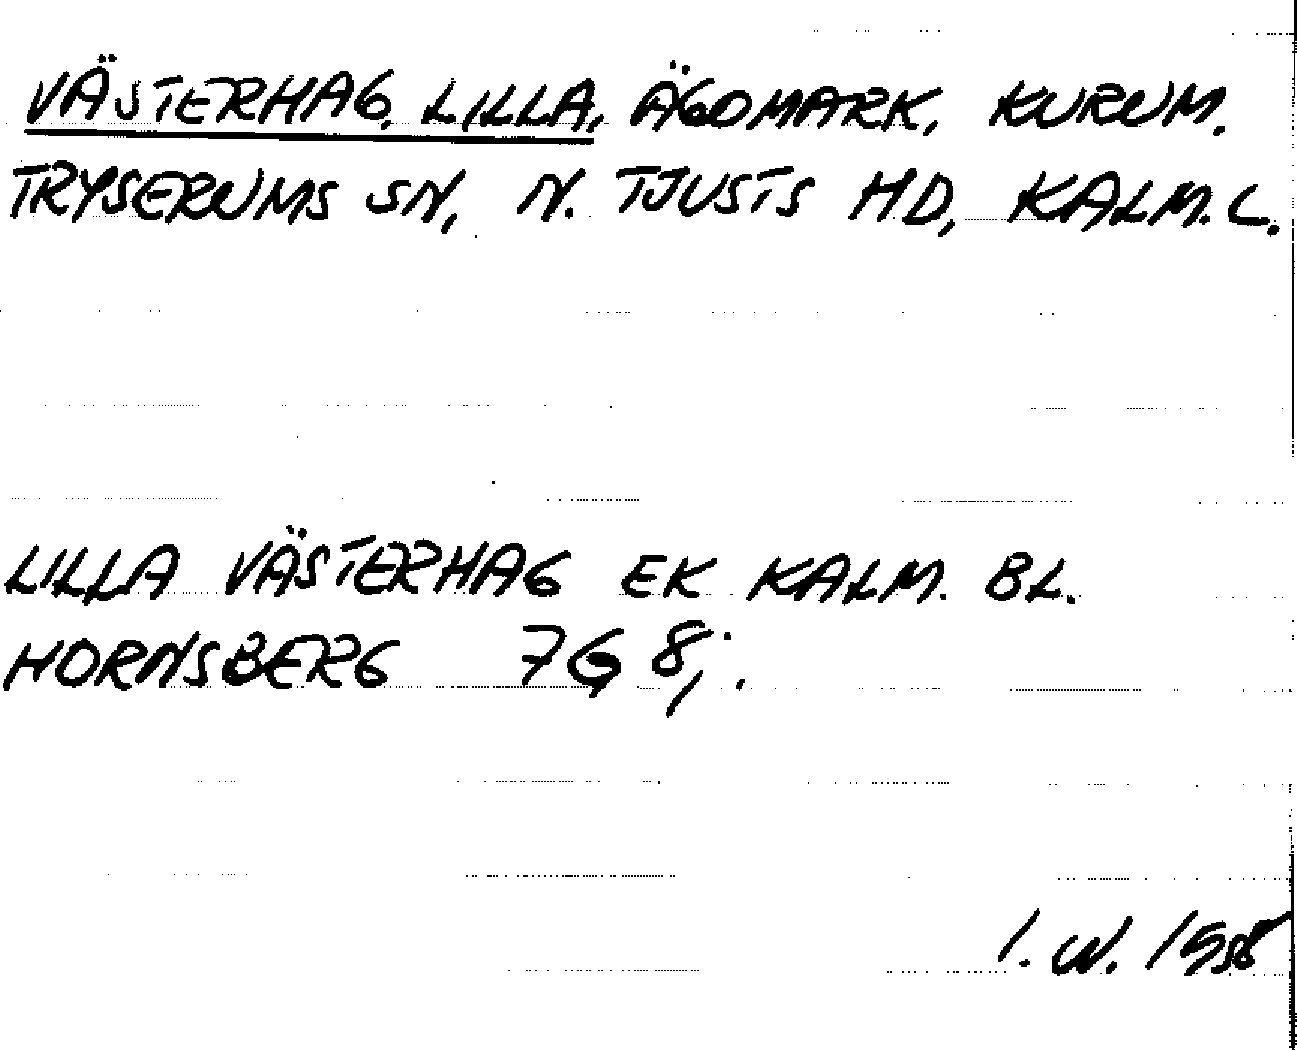 VÄSTERHAG, LILLA, ÄGOMARK, KURUM.
TRYSERUMS SN, N. TJUSTS HD, KALM. L.
LILLA VÄSTERHAG EK KALM. BL.
HORNSBERG 7G 8;.
I. W. 1958